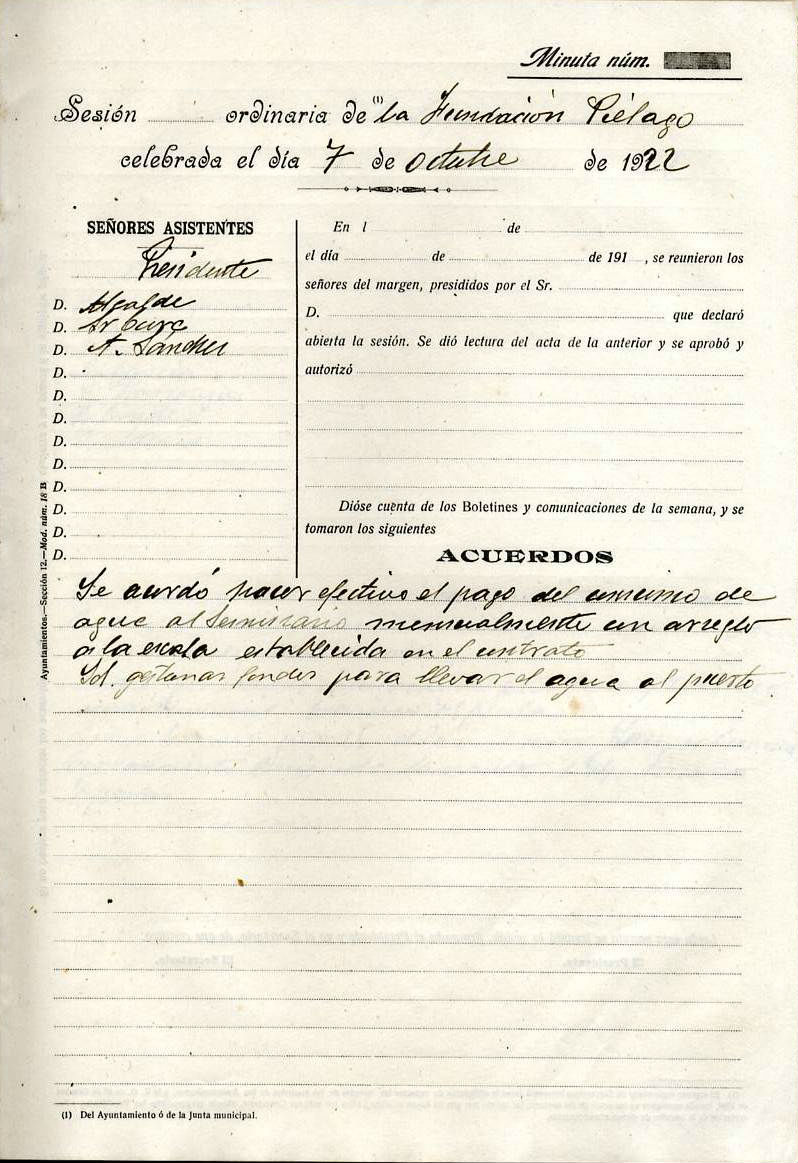 Minuta núm.
Sesión ordinaria de (1) la Fundación Piélago
celebrada el día 7 de Octubre de 1922
SEÑORES ASISTENTES
Presidente
D. Alcalde
D. Sr Cura
D. A. Sánchez
D.
D.
D.
D.
D.
D.
D.
D.
D.
En l de
el día de de 191 , se reunieron los
señores del margen, presididos por el Sr.
D. que declaró
abierta la sesión. Se dió lectura del acta de la anterior y se aprobó y
autorizó
Dióse cuenta de los Boletines y comunicaciones de la semana, y se
tomaron los siguientes
ACUERDOS
Se acordó hacer efectivo el pago del consumo de
agua al Seminario mensualmente con arreglo
a la escala establecida en el contrato
Id. gestionar fondos para llevar el agua al puerto
Ayuntamientos.—Sección 12.—Mod. núm. 18 B
(1) Del Ayuntamiento ó de la Junta municipal.